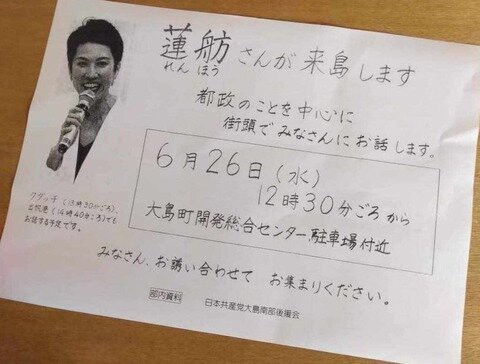 蓮舫さんが来島します
れんほう
都政のことを中心に
街頭でみなさんにお話します。
6月26日(水)
12時30分ごろから
大島町開発総合センター駐車場付近
クダッチ(13時50分ごろ)、
出帆港(14時40分ごろ)でも
お話する予定です。
みなさん、お誘い合わせて お集まりください。
部内資料
日本共産党大島南部後援会